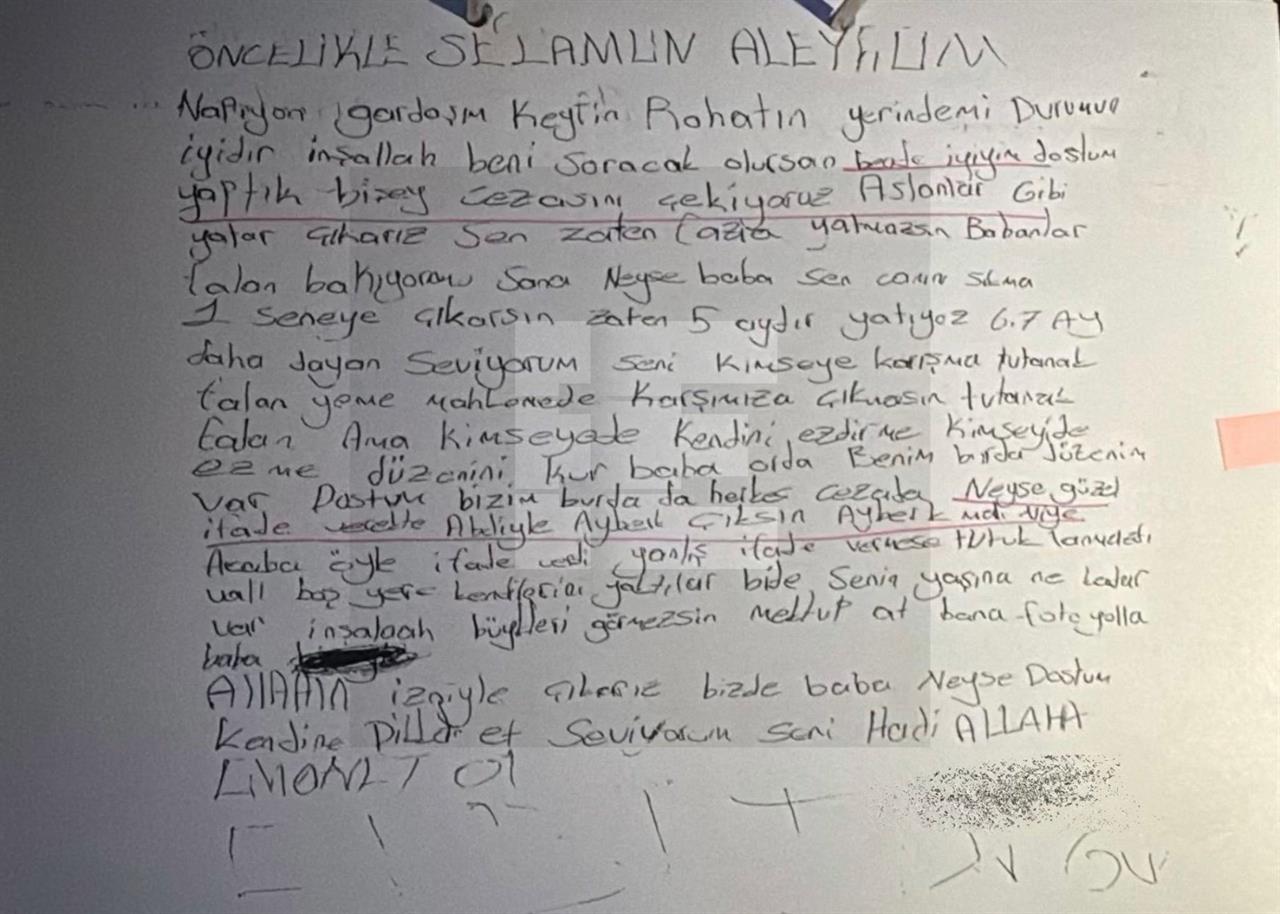 ÖNCELİKLE SELAMUN ALEYKUM
Napıyon gardaşım Keyfin Rohatın yerindemi Durumun
iyidir inşallah beni Soracak olursan bende iyiyim dostum
yaptık bizey cezasını çekiyoruz Aslanlar Gibi
yatar çıkarız Sen zaten fazla yatmazsın Babanlar
falan bakıyorow Sana Neyse baba sen canın sıkma
1 Seneye çıkarsın zaten 5 aydır yatıyoz 6.7 AY
daha dayan Seviyorum seni Kimseye karışma tutanak
falan yeme mahkemede Karşımıza çıkmasın tutanak
falan Ama Kimseyede Kendini ezdirme Kimseyide
ezme düzenini Kur baba orda Benim burda düzenim
var Dostum bizim burda da herkes cezada Neyse güzel
ifade Abdiyle Ayberk çıksın Ayberk niye
Acaba öyle ifade verdi yanlış ifade vermese
boş yere kendilerini yaktılar bide Senin yaşına ne kadar
var inşalaah büyükleri görmezsin mektup at bana foto yolla
baba
Allahın izniyle çıkarız bizde baba Neyse Dostum
Kendine Dikkat et Seviyorum seni Hadi ALLAHA
EMANET Ol